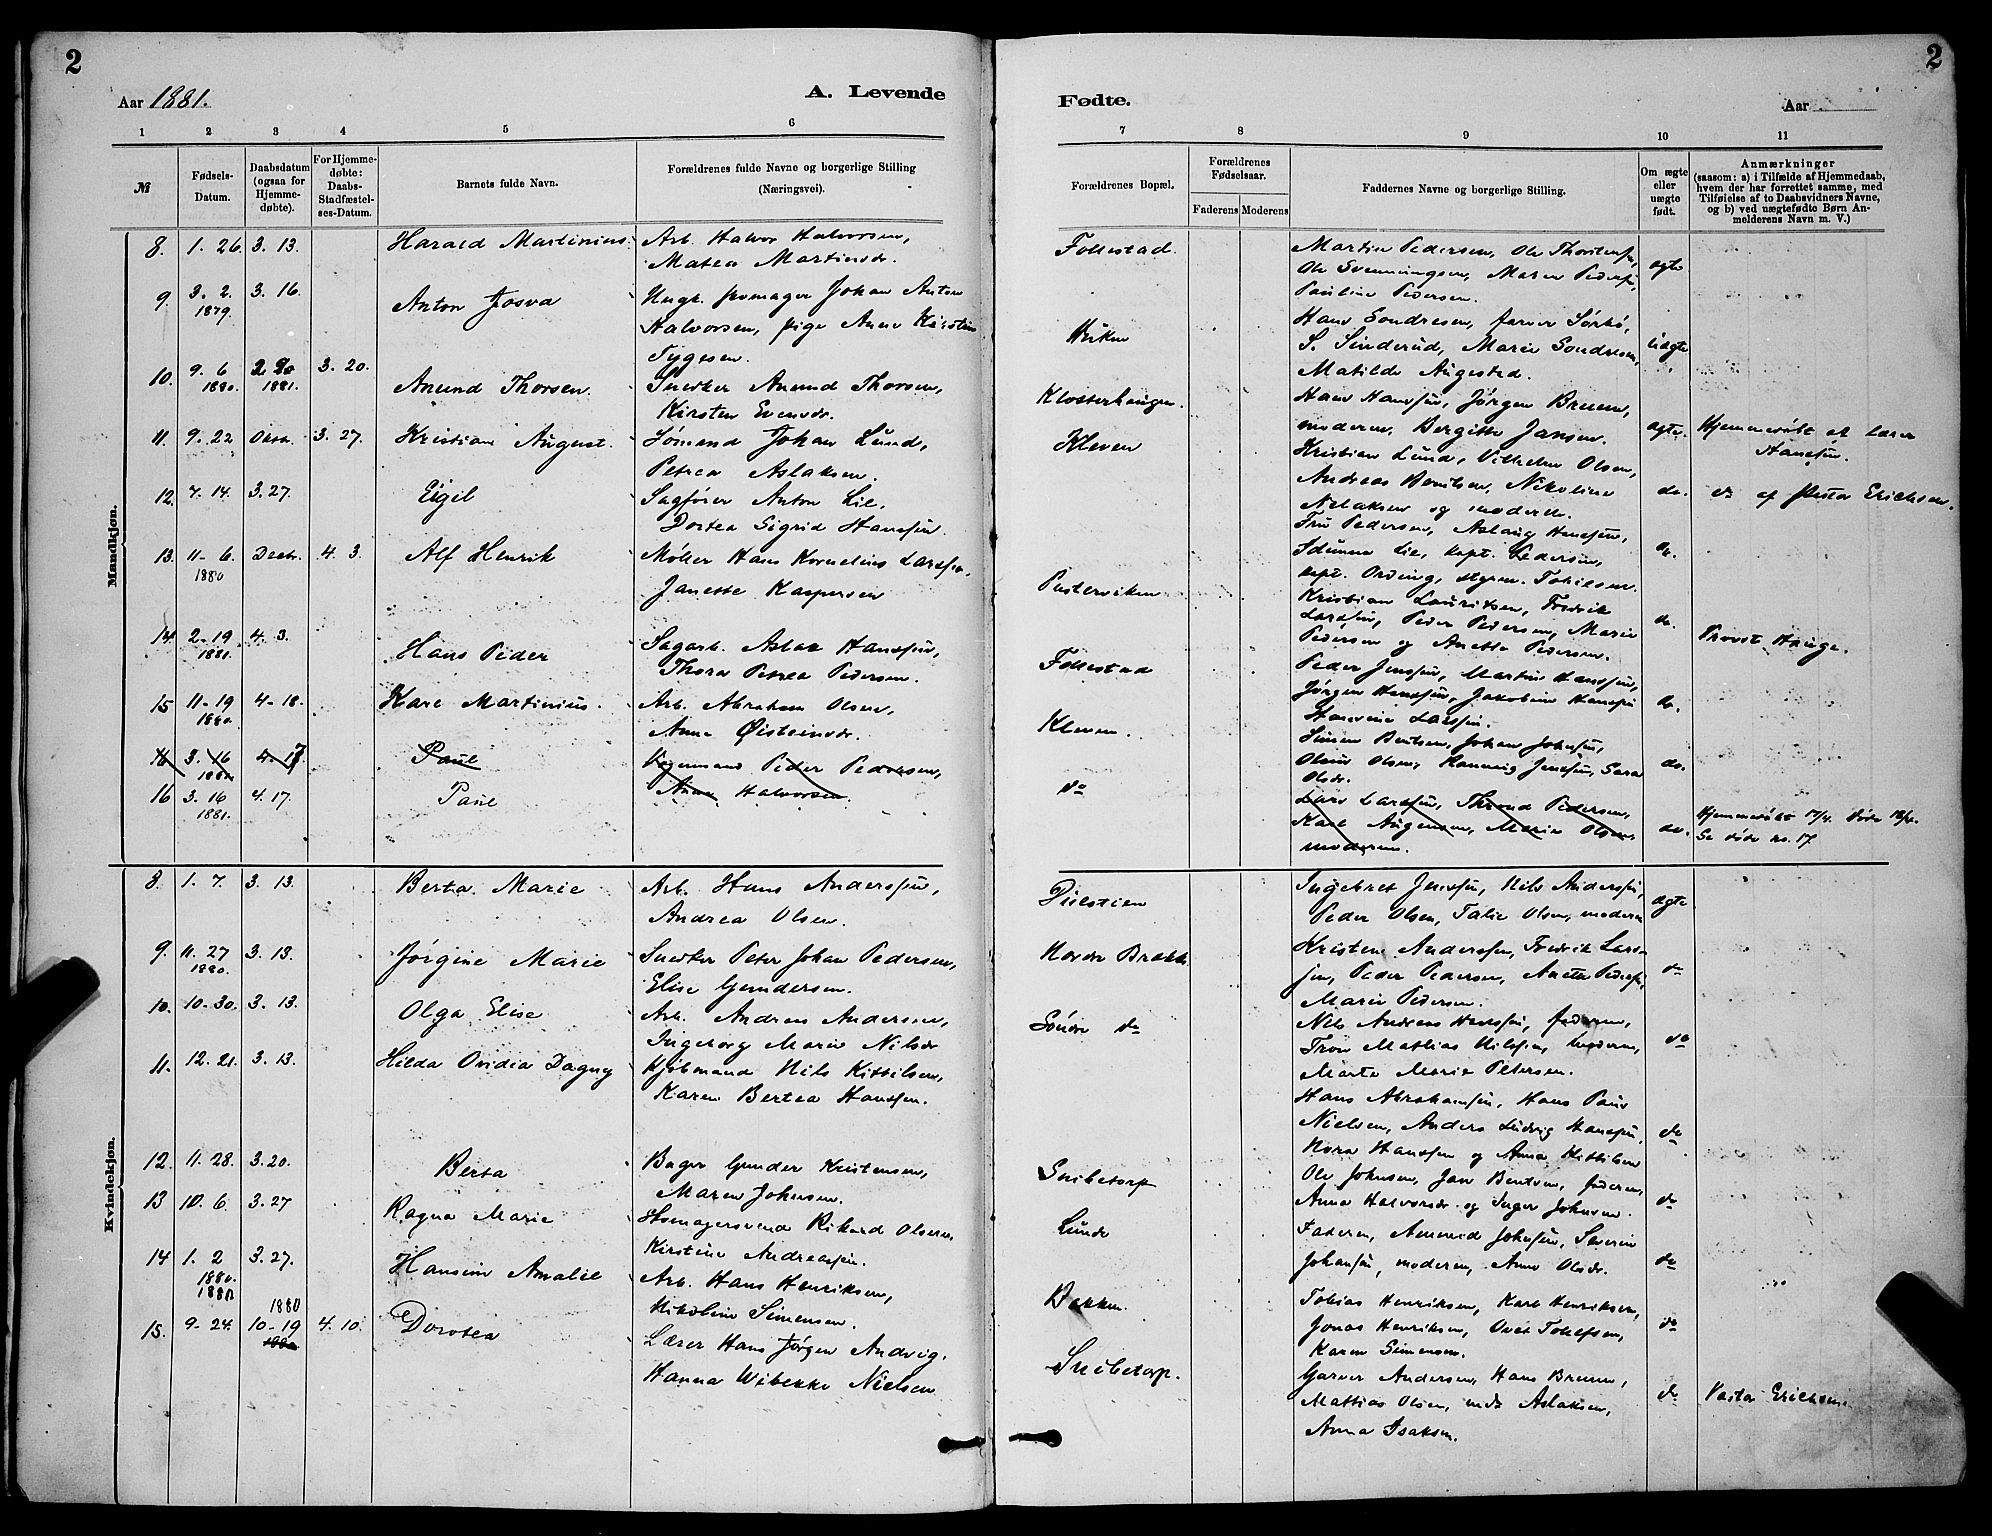 2
Aar 1881.
A. Levende
1 2 3 4 5 6
№
Fødsels-
Datum.
Daabsdatum
(ogsaa for
Hjemme-
døbte).
For Hjemme-
døbte:
Daabs-
Stadfæstel-
ses-Datum.
Barnets fulde Navn.
Forældrenes fulde Navne og borgerlige Stilling
(Næringsvei).
Mandkjøn.
8. 1. 26. 3. 13. Harald Martinius. Arb. Halvor Halvorsen,
Matea Martinsdr.
9. 3. 2. 3. 16. Anton Josva Ungk. Johan Anton
1879.
Halvorsen, pige Anne Kirstine
Tygesen.
10. 9. 6 2. 20 3. 20. Anund Thorsen. Snedker Anund Thorsen,
1880. 1881.
Kirsten Evensdr.
11. 9. 22 Oktr. 3. 27. Kristian August. Sømand Johan Lund,
Petrea Aslaksen.
12. 7. 14. 3. 27. Eigil Sagfører Anton Lie,
Dortea Sigrid Hanssen.
13. 11. 6. Decbr. 4. 3. Alf Henrik Møller Hans Kornelius Larssen,
1880
Janette Kaspersen
14. 2-19 4. 3. Hans Peder Sagarb. Aslak Hanssen,
1881.
Thora Petrea Pedersen.
15 11-19 4-18. Karl Martinius. Arb. Abraham Olsen,
1880.
Anne Øisteinsdr.
16 3. 16 4-17. Paul Peder Pedersen,
1881
16 3. 16 4. 17. Paul Anne Halvorsen.
1881.
Kvindekjøn.
8. 1. 7. 3. 13. Berta Marie Arb. Hans Anderssen,
Andrea Olsen.
9. 11. 27 3. 13. Jørgine Marie Snedker Peter Johan Pedersen,
1880.
Elise Gundersen.
10. 10-30. 3. 13. Olga Elise Arb. Andreas Andersen,
Ingeborg Marie Nilsdr
11. 12. 21. 3. 13. Hilda Ovidia Dagny Kjøbmand Nils Kittilsen,
Karen Bertea Hanssen.
12. 11. 28. 3. 20. Berta Bager Gunder Kristensen,
Maren Johnsen.
13 10. 6. 3. 27 Ragna Marie Rikard Olsen,
Kirstine Andreassen.
14 1. 2 3. 27. Hansine Amalie Arb. Hans Henriksen,
1880.
Nikoline Simensen.
1880 1880
15. 9-24. 10-19 4. 10. Dorotea Lærer Hans Jørgen Andvig.
1880
Hanna Wibekke Nielsen
2
Fødte.
Aar
7 8 9 10 11
Forældrenes Bopæl.
Forældrenes
Fødselsaar.
Faderens Moderens
Faddernes Navne og borgerlige Stilling.
Om ægte
eller
uægte
født.
Anmærkninger
(saasom: a) i Tilfælde af Hjemmedaab,
hvem der har forrettet samme, med
Tilføielse af to Daabsvidners Navne,
og b) ved uægtefødte Børn An-
melderens Navn m. V.)
Follestad. Martin Pedersen, Ole Thorstensen, ægte
Ole Svenningsen, Maren Pedersen,
Pauline Pedersen.
Hans Sondresen, Sørbø,
S. Sinderud, Marie Sondresen, uægte
Matilde Augestad.
Klosterhaugen. Hans Hanssen, Jørgen Bruun,
moderen, Bergitte Jansen. ægte. Hjemmedøbt af Lærer
Hanssen.
Kleven Kristian Lund, Vilhelm Olsen,
Andreas Bentsen, Nikoline do. do af Pastor Erichsen.
Aslaksen og moderen.
Fru Pedersen, Aslaug Hanssen,
Idunna Lie, kapt. Pedersen, do.
kapt. Ording, styrm. Tobiesen.
Pusterviken Kristian Lauritsen, Fredrik
Larssen, Peder Pedersen, Marie do. Provst Hauge.
Pedersen og Anette Pedersen.
Follestad Peder Jenssen, Martin Hanssen,
Jørgen Hanssen, Jakobine Hanssen do.
Larssen.
Kleven. Simen Bentsen, Johan Johnsen,
Olaus Olsen, Jenssen, Sara do.
Olsdr.
do Lars Larssen, Thrond Pedersen,
Karl Augensen, Maria Olsen, do. Hjemmedøbt 17/4. død 18/4.
moderen. Se døde no. 17.
Ingebret Jenssen, Nils Anderssen,
Peder Olsen, Talie Olsen, moderen ægte
Nordre Brække Kristen Anderssen, Fredrik Lars-
sen, Peder Pedersen, Anette Pedersen, do
Marie Pedersen.
Søndre do Nils Andreas Hanssen, faderen,
Tron Mathias Nilssen, moderen, do
Marte Marie Petersen.
Hans Abrahamsen, Hans Paus
Nielsen, Anders Ludvig Hanssen, do
Nora Hanssen og Anna Kittilsen
Snibetorp Ole Johnsen, Jan Bentsen, faderen,
Anne Halvorsdr. og Inger Johnsen. do
Lunde Faderen, Anund Johnsen, Severin
Johansen, moderen, Anne Olsdr. do
Bakken. Tobias Henriksen, Karl Henriksen,
Jonas Henriksen, Tollefsen, do
Karen Simensen.
Snibetorp. Garver Andersen, Hans Bruun,
Mattias Olsen, Aslaksen, do Pastor Erichsen.
Anna Isaksen.